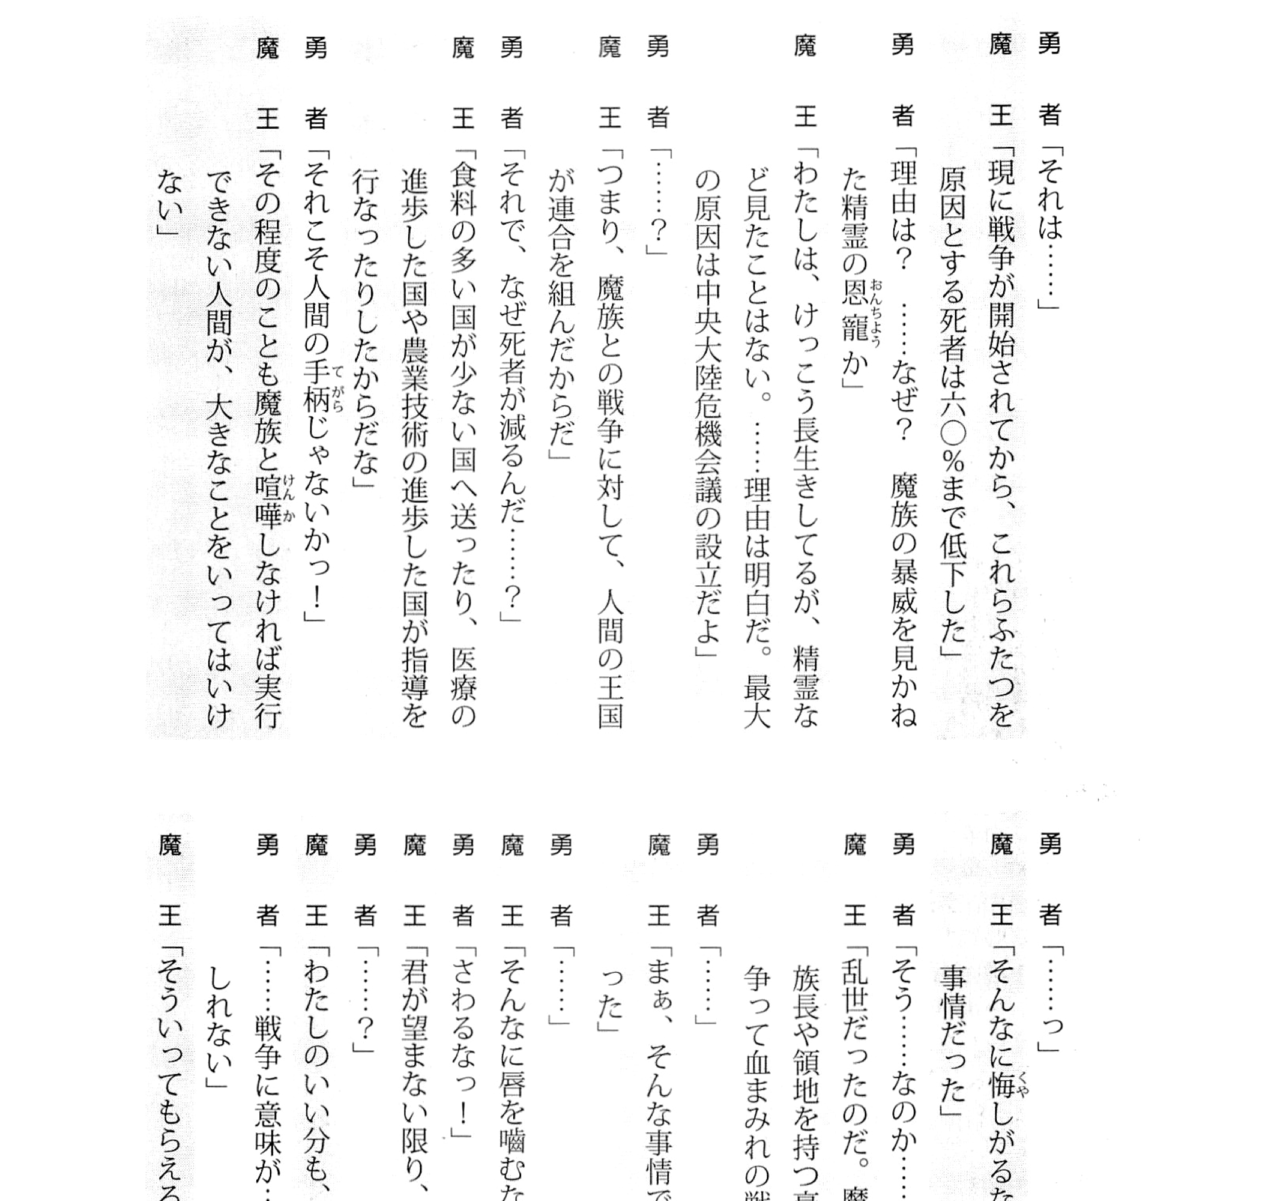 勇者「それは……」
魔王「現に戦争が開始されてから、これらふたつを
原因とする死者は六〇％まで低下した」
勇者「理由は？　……なぜ？　魔族の暴威を見かね
た精霊の恩寵か」
魔王「わたしは、けっこう長生きしてるが、精霊な
ど見たことはない。……理由は明白だ。最大
の原因は中央大陸危機会議の設立だよ」
勇者「……？」
魔王「つまり、魔族との戦争に対して、人間の王国
が連合を組んだからだ」
勇者「それで、なぜ死者が減るんだ……？」
魔王「食料の多い国が少ない国へ送ったり、医療の
進歩した国や農業技術の進歩した国が指導を
行なったりしたからだな」
勇者「それこそ人間の手柄じゃないかっ！」
魔王「その程度のことも魔族と喧嘩しなければ実行
できない人間が、大きなことをいってはいけ
ない」
勇者「……っ」
魔王「そんなに悔しがるな
事情だった」
勇者「そう……なのか……
魔王「乱世だったのだ。魔
族長や領地を持つ豪
争って血まみれの戦
勇者「……」
魔王「まぁ、そんな事情で
った」
勇者「……」
魔王「そんなに唇を嚙むな
勇者「さわるなっ！」
魔王「君が望まない限り、
勇者「……？」
魔王「わたしのいい分も、
勇者「……戦争に意味が…
しれない」
魔王「そういってもらえる